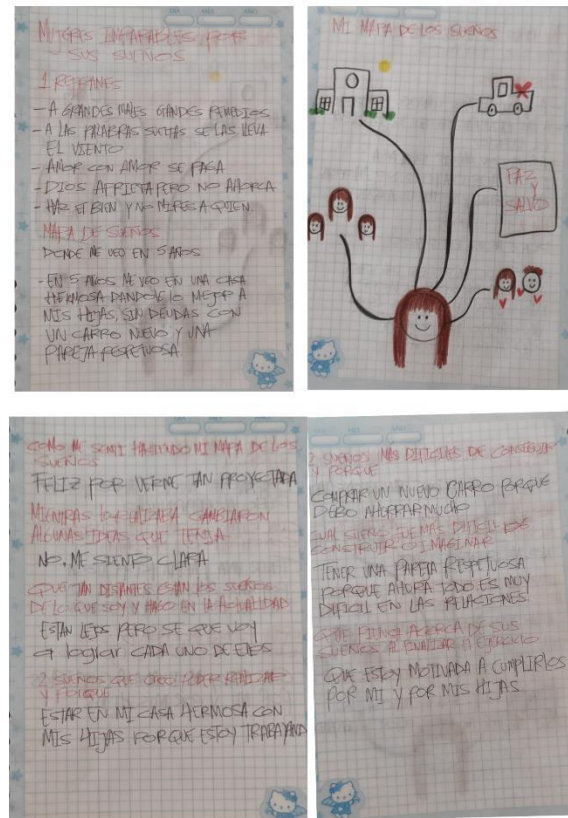 MUJERES IMPARABLES POR
SUS SUEÑOS
1. REFRANES
- A GRANDES MALES GRANDES REMEDIOS
- A LAS PALABRAS SUELTAS SE LAS LLEVA
EL VIENTO
- AMOR CON AMOR SE PAGA
- DIOS APRIETA PERO NO AHORCA
- HAZ EL BIEN Y NO MIRES A QUIEN
MAPA DE SUEÑOS
DONDE ME VEO EN 5 AÑOS
- EN 5 AÑOS ME VEO EN UNA CASA
HERMOSA DANDOLE LO MEJOR A
MIS HIJAS, SIN DEUDAS CON
UN CARRO NUEVO Y UNA
PAREJA RESPETUOSA.
MI MAPA DE LOS SUEÑOS
PAZ
Y
SALVO
COMO ME SENTI HACIENDO MI MAPA DE LOS
SUEÑOS
FELIZ POR VERME TAN PROYECTADA
MIENTRAS LO REALIZABA CAMBIARON
ALGUNAS IDEAS QUE TENIA
NO, ME SIENTO CLARA
QUE TAN DISTANTES ESTAN LOS SUEÑOS
DE LO QUE SOY Y HAGO EN LA ACTUALIDAD
ESTAN LEJOS PERO SE QUE VOY
a lograr CADA UNO DE ELLOS
2 SUEÑOS QUE CREO PODER REALIZAR
Y PORQUE
ESTAR EN MI CASA HERMOSA CON
MIS HIJAS PORQUE ESTOY TRABAJAND
2 SUEÑOS MAS DIFICILES DE CONSEGUIR
Y PORQUE
COMPRAR UN NUEVO CARRO PORQUE
DEBO AHORRAR MUCHO
CUAL SUEÑO FUE MAS DIFICIL DE
CONSTRUIR O IMAGINAR
TENER UNA PAREJA RESPETUOSA
PORQUE AHORA TODO ES MUY
DIFICIL EN LAS RELACIONES
QUE PIENSA ACERCA DE SUS
SUEÑOS AL FINALIZAR EL EJERCICIO
QUE ESTOY MOTIVADA A CUMPLIRLOS
POR MI Y POR MIS HIJAS